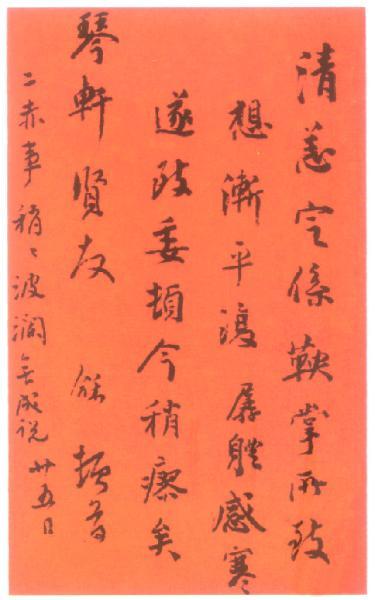 清恙定係鞅掌所致
想漸平復孱體感寒
遂致委頓今稍瘳矣
琴軒賢友
二赤事稍〻波瀾無成說 廿五日